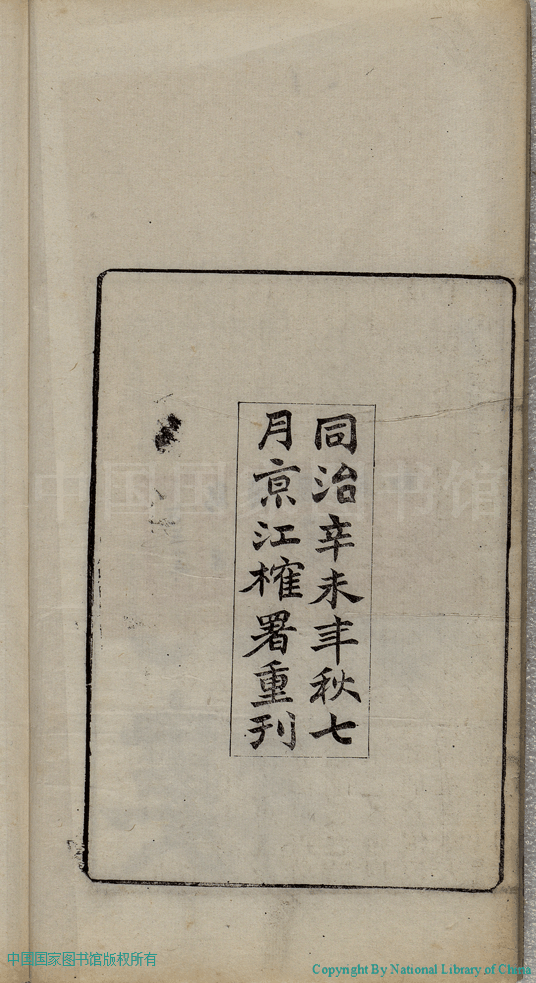 同治辛未年秋七
月京江榷署重刊
中国国家图书馆
中国国家图书馆版权所有
Copyright By National Library of China